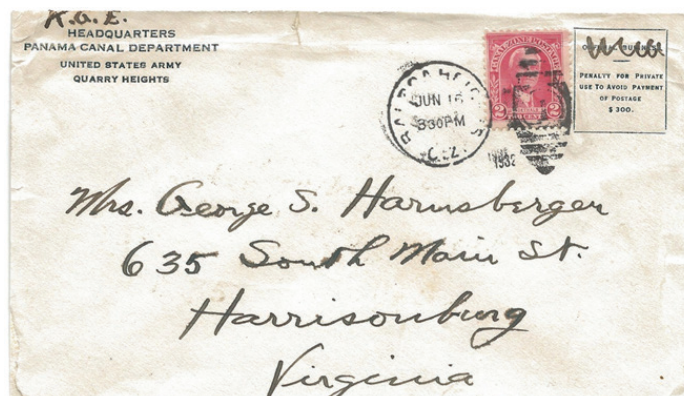 R.G.E.
HEADQUARTERS
PANAMA CANAL DEPARTMENT
UNITED STATES ARMY
QUARRY HEIGHTS
BALBOA HEIGHTS
JUN 16
330PM
C.Z.
1932
CANAL ZONE POSTAGE
2 2
PENALTY FOR PRIVATE
USE TO AVOID PAYMENT
OF POSTAGE
$300.
Mrs. George S. Harnsberger
635 South Main St.
Harrisonburg
Virginia